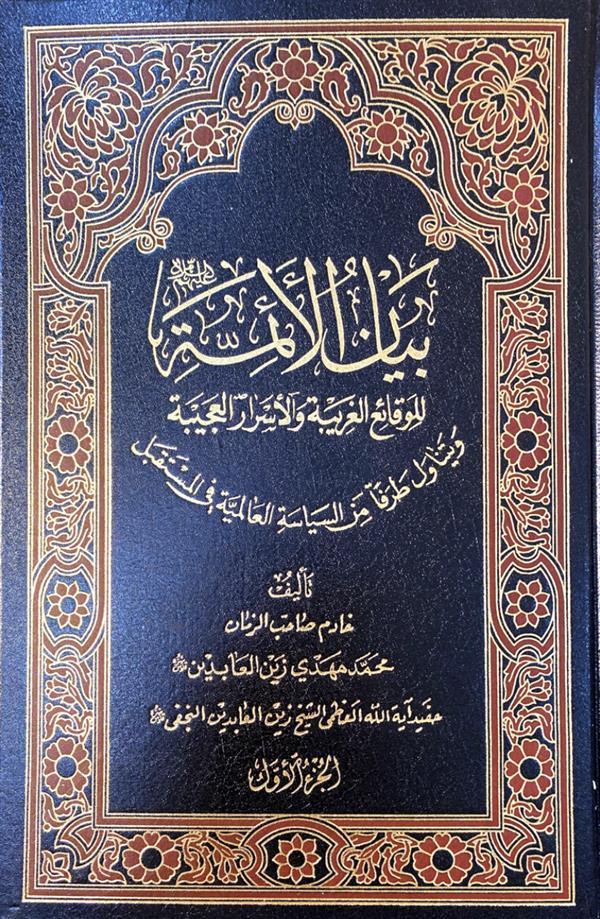 بَيَانُ الأَئِمَّةِ عليهم السلام
للوقائع الغريبة والأسرار العجيبة
ويتناول طرفاً من السياسة العالمية في المستقبل
تأليف
خادم صاحب الزمان
محمد مهدي زين العابدين
حفيد آية الله العظمى الشيخ زين العابدين النجفي
الجزء الأول